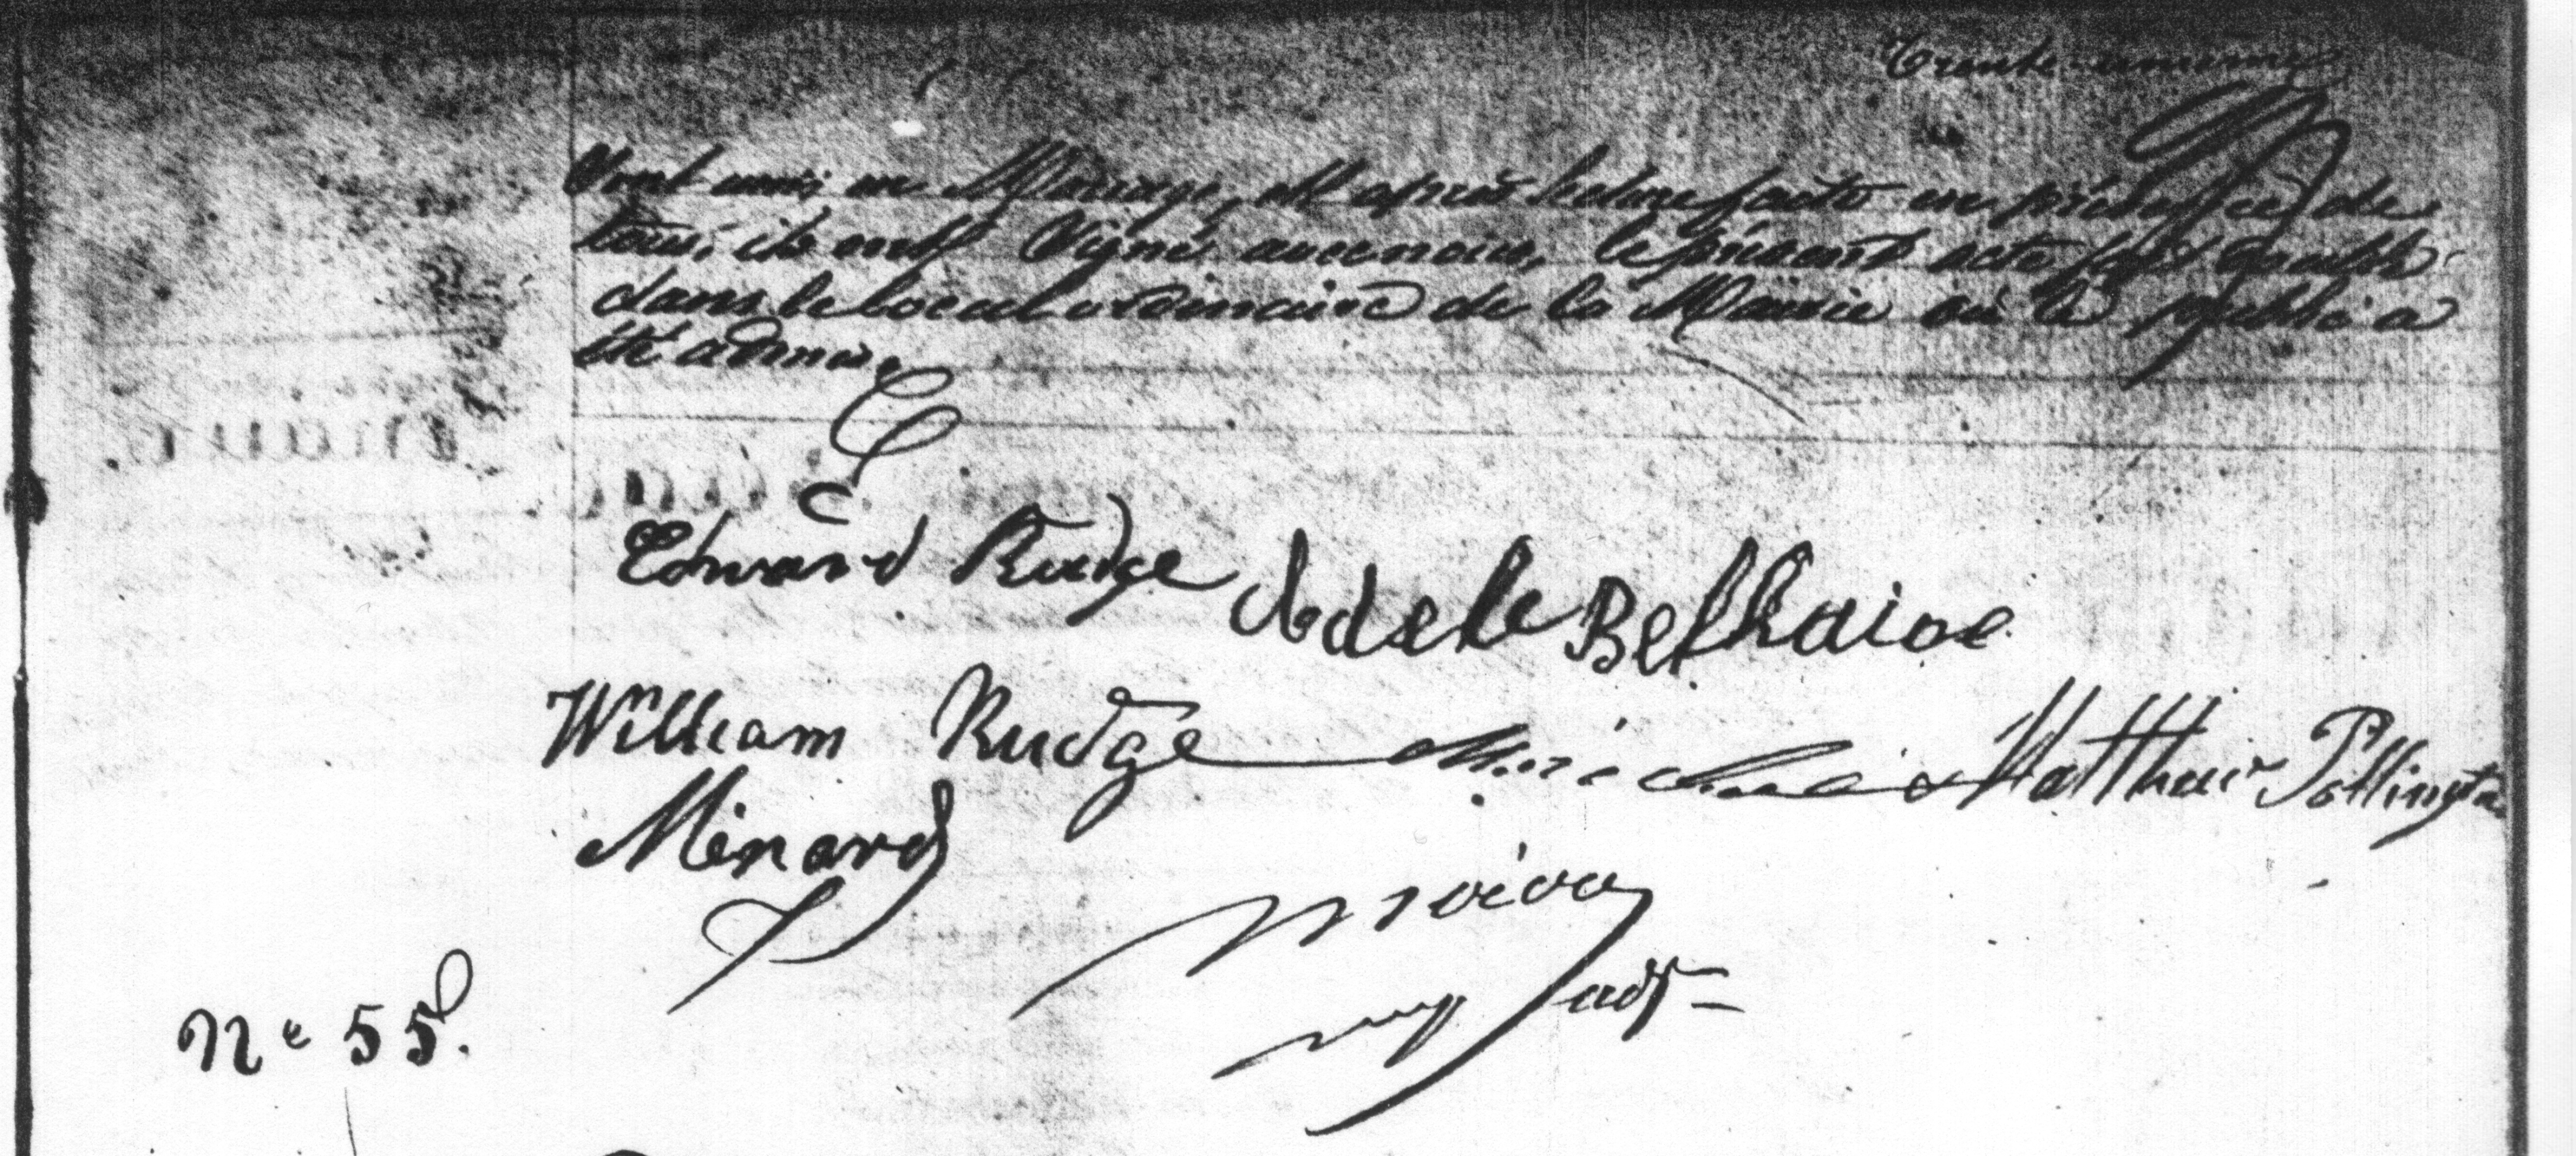 Trente-unième
Sont unis en Mariage, et après lecture faite en présence de
tous, ils ont Signé avec nous, le présent acte fait double
dans le local ordinaire de la Mairie où le public a
été admis.
Edward Rudge Adele Belhaioe
William Rudge Matthew Pollington
Menard
adjt
Ne 55.